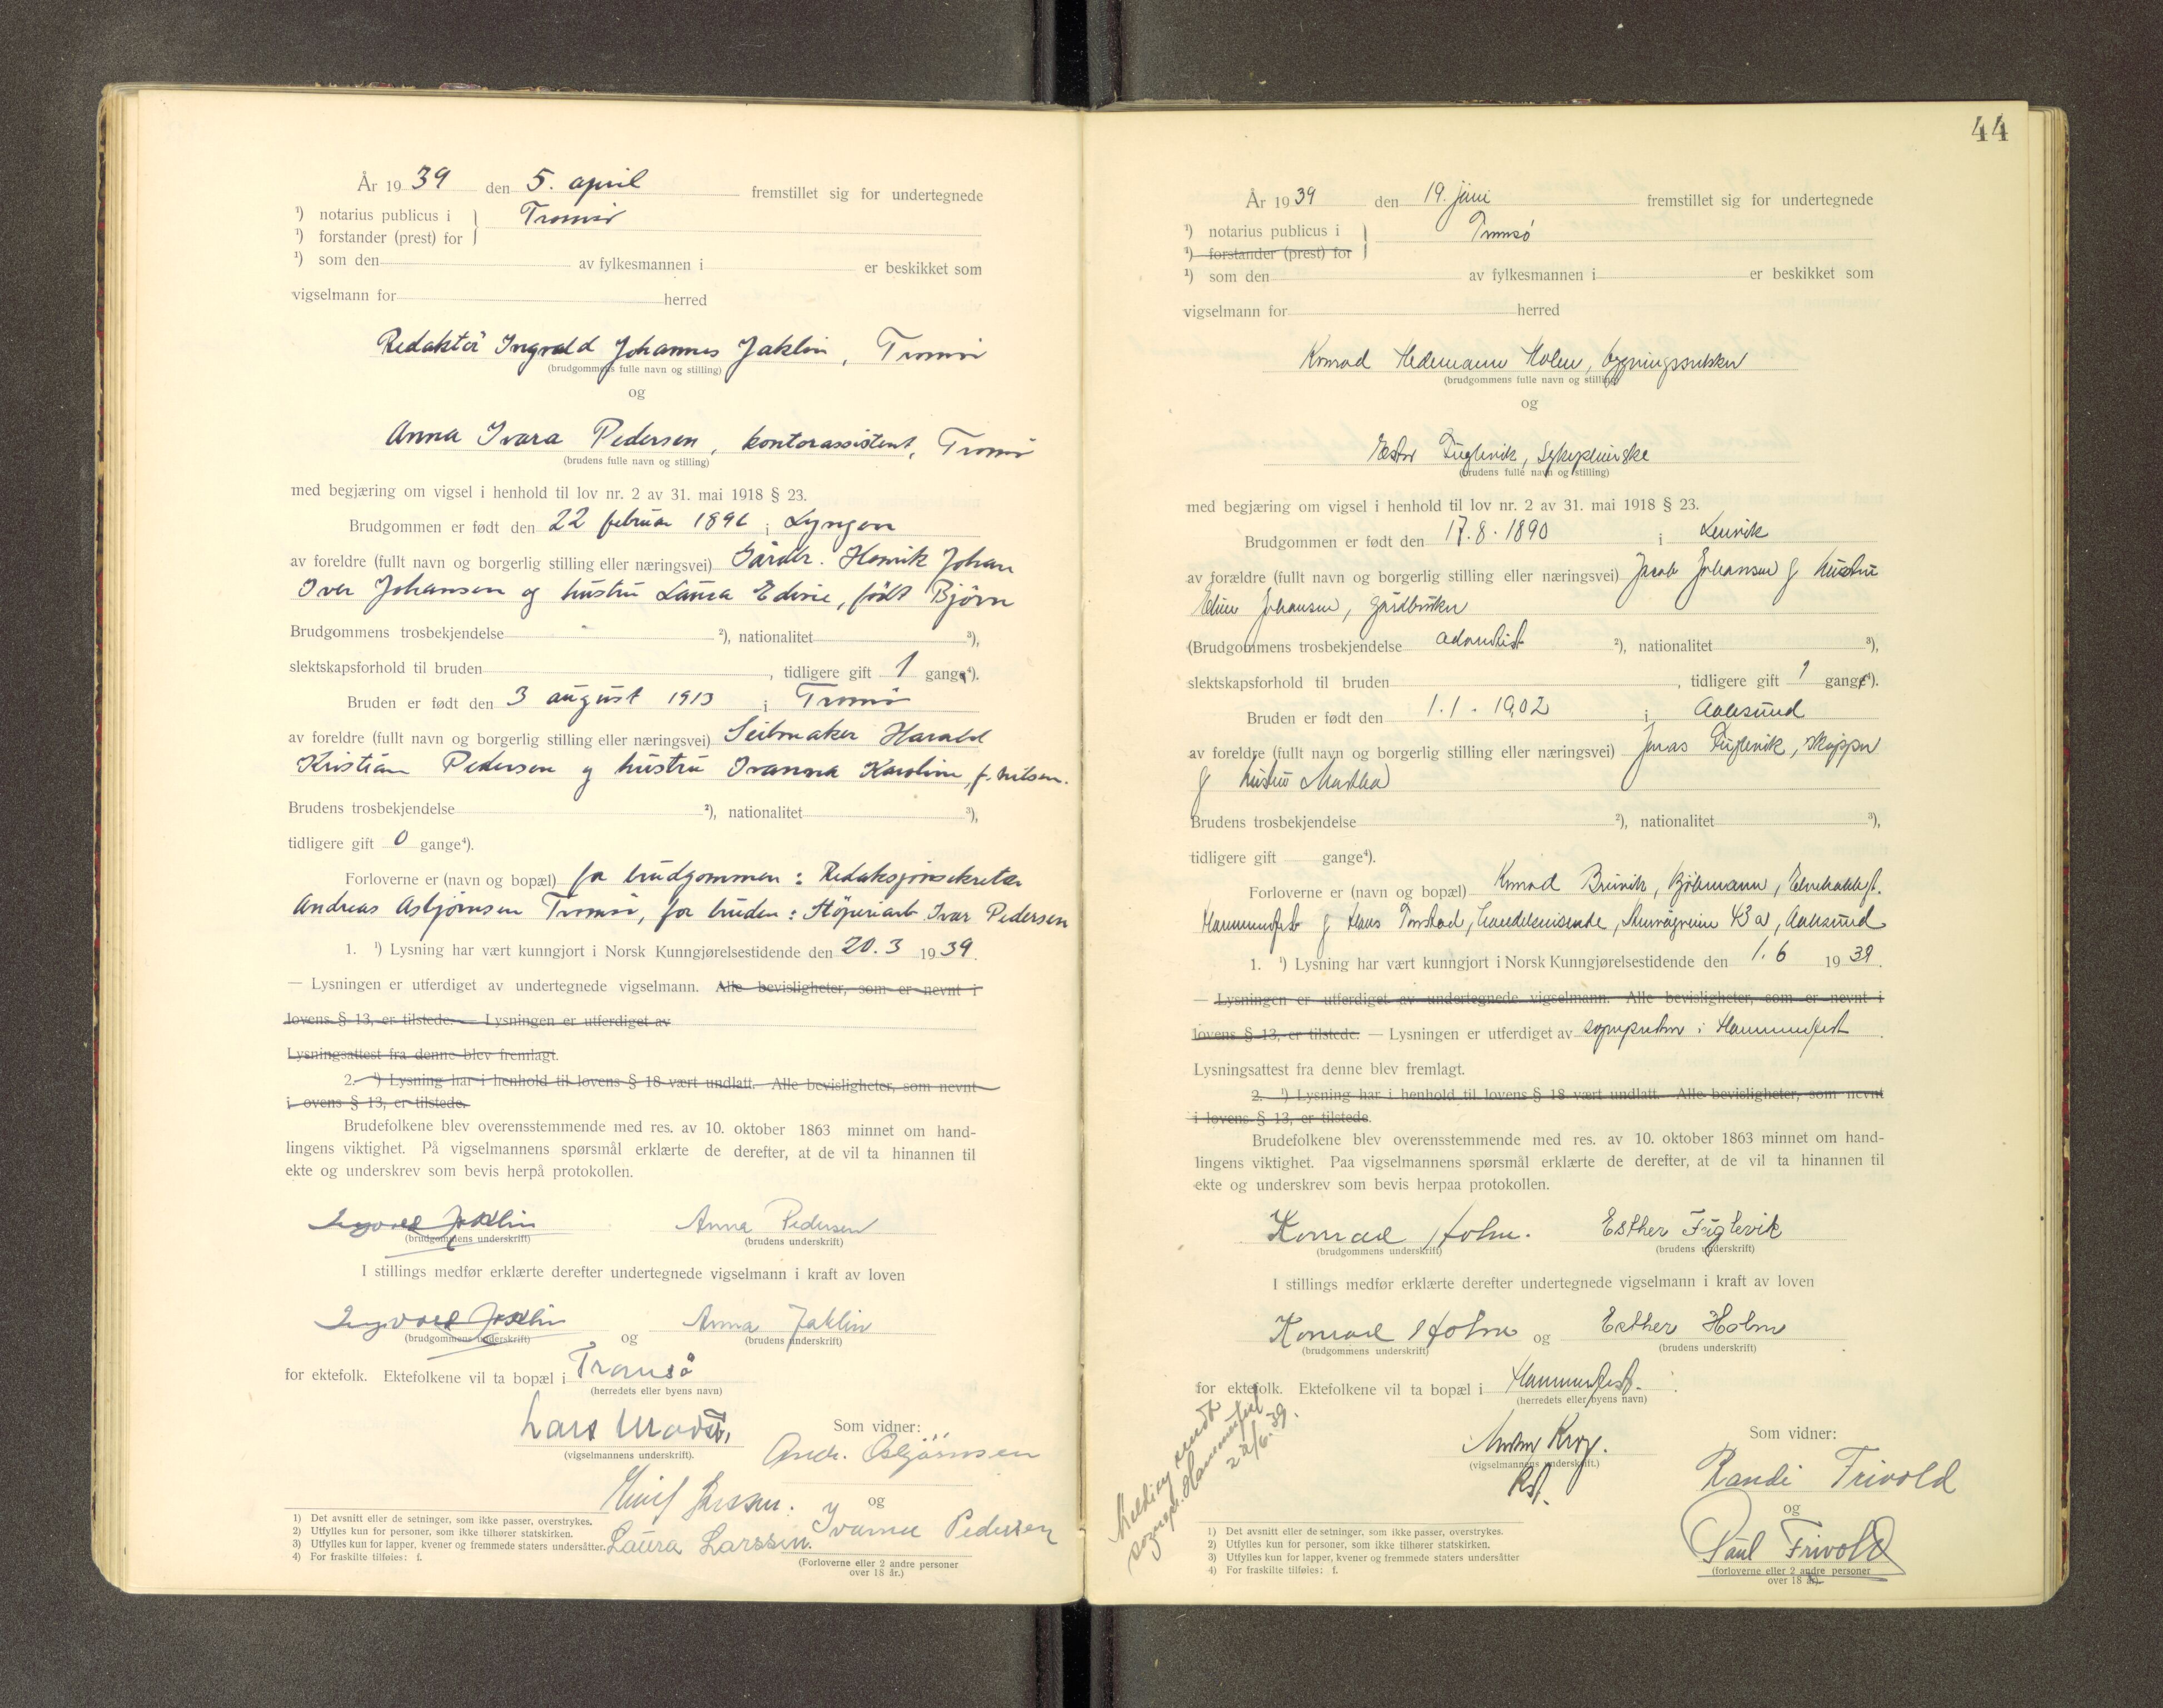 År 1939 den 5. april fremstillet sig for undertegnede
¹) notarius publicus i } Tromsö
¹) forstander (prest) for
¹) som den av fylkesmannen i er beskikket som
vigselmann for herred
Redaktör Ingvald Johannes Jaklin, Tromsö
(brudgommens fulle navn og stilling)
og
Anna Ivara Pedersen, kontorassistent, Tromsö
(brudens fulle navn og stilling)
med begjæring om vigsel i henhold til lov nr. 2 av 31. mai 1918 § 23.
Brudgommen er født den 22 februar 1896 i Lyngen
av foreldre (fullt navn og borgerlig stilling eller næringsvei) Gårdbr. Henrik Johan
Iver Johansen og hustru Laura Edine, født Björn
Brudgommens trosbekjendelse ²), nationalitet ³),
slektskapsforhold til bruden , tidligere gift 1 gange⁴).
Bruden er født den 3 august 1913 i Tromsö
av foreldre (fullt navn og borgerlig stilling eller næringsvei) Seilmaker Harald
Kristian Pedersen og hustru Ivanna Karoline, f. Nilsen.
Brudens trosbekjendelse ²), nationalitet ³),
tidligere gift 0 gange⁴).
Forloverne er (navn og bopæl) for brudgommen: Redaksjonsekretær
Andreas Asbjörnsen Tromsö, for bruden: Stöperiarb. Ivar Pedersen
1. ¹) Lysning har vært kunngjort i Norsk Kunngjørelsestidende den 20.3 1939.
— Lysningen er utferdiget av undertegnede vigselmann. Alle bevisligheter, som er nevnt i
lovens § 13, er tilstede. — Lysningen er utferdiget av
Lysningsattest fra denne blev fremlagt.
2. ¹) Lysning har i henhold til lovens § 18 vært undlatt. Alle bevisligheter, som nevnt
i ovens § 13, er tilstede.
Brudefolkene blev overensstemmende med res. av 10. oktober 1863 minnet om hand-
lingens viktighet. På vigselmannens spørsmål erklærte de derefter, at de vil ta hinannen til
ekte og underskrev som bevis herpå protokollen.
Ingvald Jaklin Anna Pedersen
(brudgommens underskrift) (brudens underskrift)
I stillings medfør erklærte derefter undertegnede vigselmann i kraft av loven
Ingvald Jaklin og Anna Jaklin
(brudgommens underskrift) (brudens underskrift)
for ektefolk. Ektefolkene vil ta bopæl i Tromsö
(herredets eller byens navn)
Lars Som vidner:
(vigselmannens underskrift). Andr. Asbjörnsen
og
Pedersen
Laura Larssen.
1) Det avsnitt eller de setninger, som ikke passer, overstrykes.
2) Utfylles kun for personer, som ikke tilhører statskirken.
3) Utfylles kun for lapper, kvener og fremmede staters undersåtter.
4) For fraskilte tilføies: f.
(Forloverne eller 2 andre personer
over 18 år.)
44
År 1939 den 19. juni fremstillet sig for undertegnede
¹) notarius publicus i } Tromsö
¹) forstander (prest) for
¹) som den av fylkesmannen i er beskikket som
vigselmann for herred
Konrad Hedemann Holm, bygningssnekker
(brudgommens fulle navn og stilling)
og
Ester Fuglevik, Sykepleierske
(brudens fulle navn og stilling)
med begjæring om vigsel i henhold til lov nr. 2 av 31. mai 1918 § 23.
Brudgommen er født den 17.8.1890 i Lenvik
av forældre (fullt navn og borgerlig stilling eller næringsvei) Jacob Johansen og hustru
Eline Johansen, gårdbruker
(Brudgommens trosbekjendelse adventist ²), nationalitet ³),
slektskapsforhold til bruden , tidligere gift 1 gange⁴).
Bruden er født den 1.1.1902 i Aalesund
av foreldre (fullt navn og borgerlig stilling eller næringsvei) Jonas Fuglevik, skipper
og hustru Martha
Brudens trosbekjendelse ²), nationalitet ³),
tidligere gift gange⁴).
Forloverne er (navn og bopæl) Konrad Breivik,
Hammerfest og Hans handelsreisende, 43 a, Aalesund
1. ¹) Lysning har vært kunngjort i Norsk Kunngjørelsestidende den 1.6 1939.
— Lysningen er utferdiget av undertegnede vigselmann. Alle bevisligheter, som er nevnt i
lovens § 13, er tilstede. — Lysningen er utferdiget av sogneprsten i Hammerfest.
Lysningsattest fra denne blev fremlagt.
2. ¹) Lysning har i henhold til lovens § 18 vært undlatt. Alle bevisligheter, som nevnt
i lovens § 13, er tilstede.
Brudefolkene blev overensstemmende med res. av 10. oktober 1863 minnet om hand-
lingens viktighet. Paa vigselmannens spørsmål erklærte de derefter, at de vil ta hinannen til
ekte og underskrev som bevis herpaa protokollen.
Konrad Holm. Esther Fuglevik
(brudgommens underskrift) (brudens underskrift)
I stillings medfør erklærte derefter undertegnede vigselmann i kraft av loven
Konrad Holm og Esther Holm
(brudgommens underskrift) (brudens underskrift)
for ektefolk. Ektefolkene vil ta bopæl i Hammerfest.
(herredets eller byens navn)
Som vidner:
(vigselmannens underskrift.)
Randi Trivold
og
Paul Trivold
(forloverne eller 2 andre personer
over 18 år).
Melding sendt
sognepr. Hammerfest
22/6.39.
1) Det avsnitt eller de setninger, som ikke passer, overstrykes.
2) Utfylles kun for personer, som ikke tilhører statskirken.
3) Utfylles kun for lapper, kvener og fremmede staters undersåtter
4) For fraskilte tilføies: f.